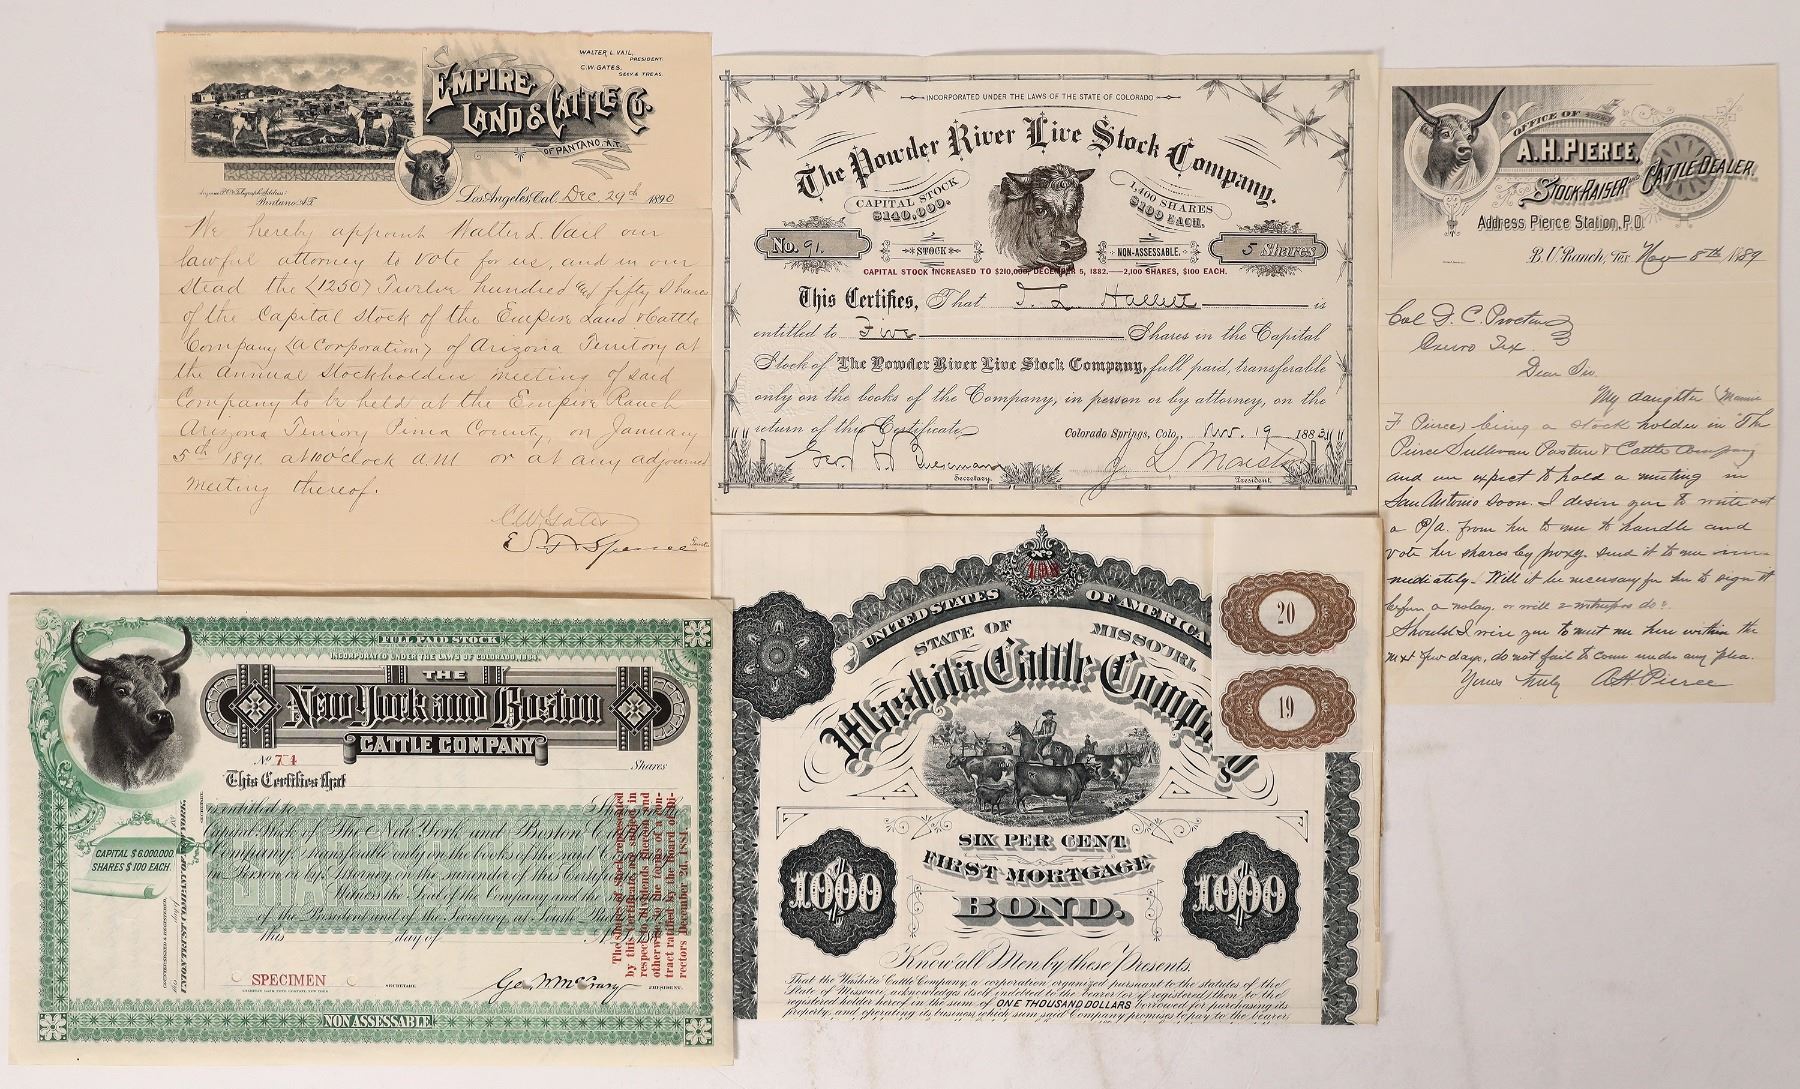 EMPIRE
LAND & CATTLE CO.
OF PANTANO, A.T.
WALTER L. VAIL,
PRESIDENT.
C.W. GATES,
SECY & TREAS.
Pantano, A.T.
Los Angeles, Cal. Dec. 29th 1890
We hereby appoint Walter L. Vail our
lawful attorney to vote for us, and in our
stead the (1250) Twelve hundred and fifty Shares
of the Capital Stock of the Empire Land & Cattle
Company (a Corporation) of Arizona Territory at
the Annual Stockholders meeting of said
Company to be held at the Empire Ranch
Arizona Terriory Pima County, on January
5th 1891. at 10 o'clock A.M or at any adjourned
meeting thereof.
C.W. Gates
INCORPORATED UNDER THE LAWS OF THE STATE OF COLORADO
The Powder River Live Stock Company.
CAPITAL STOCK
$140,000.
1,400 SHARES
$100 EACH.
No. 91.
STOCK
NON-ASSESSABLE.
5 Shares
CAPITAL STOCK INCREASED TO $210,000, DECEMBER 5, 1882.—2,100 SHARES, $100 EACH.
This Certifies, That T. L. Hallett is
entitled to Five Shares in the Capital
Stock of The Powder River Live Stock Company, full paid, transferable
only on the books of the Company, in person or by attorney, on the
return of this Certificate.
Colorado Springs, Colo., Nov. 19 1883
Secretary.
President.
OFFICE OF
A.H. PIERCE,
STOCK RAISER AND CATTLE DEALER.
Address Pierce Station, P.O.
B.U. Ranch, Tex Nov 8th 1889
Col D. C. Proctor
Cuero Tex.
Dear Sir.
My daughter (Mamie
F Pierce) being a stock holder in "The
Pierce Sullivan Pasture & Cattle Company
and we expect to hold a meeting in
San Antonio soon. I desire you to write out
a P/a. from her to me to handle and
vote her shares by proxy. send it to me im-
mediately. Will it be necessary for her to sign it
before a notary. or will 2 witnesses do?
Should I wire you to meet me here within the
next few days, do not fail to come under any plea.
Yours truly A H. Pierce
FULL PAID STOCK
INCORPORATED UNDER THE LAWS OF COLORADO 1884.
THE
New York and Boston
CATTLE COMPANY
No 74
Shares
This Certifies that
is entitled to Shares in the
Capital Stock of The New York and Boston Cattle
Company. Transferable only on the books of the said Company
in Person or by Attorney on the surrender of this Certificate
Witness the Seal of the Company and the
of the President and of the Secretary, at South
this day of
CAPITAL $6,000,000.
SHARES $100 EACH.
COUNTERSIGNED & REGISTERED.
The shares of stock represented
by this certificate are subject in
respect to dividends thereon and
otherwise to the terms of a con-
tract ratified by the Board of Di-
rectors December 2d, 1884.
SPECIMEN
SECRETARY.
Geo. W. McCrary
PRESIDENT.
NON ASSESSABLE.
No
198
UNITED STATES OF AMERICA
STATE OF MISSOURI.
Washita Cattle Company
20
19
SIX PER CENT
FIRST MORTGAGE
BOND.
1000
1000
Know all Men by these Presents.
That the Washita Cattle Company, a corporation organized pursuant to the statutes of the
State of Missouri, acknowledges itself indebted to the bearer (or if registered) then to the
registered holder hereof in the sum of ONE THOUSAND DOLLARS borrowed for purchasing its
property, and operating its business, which sum said Company promises to pay to the bearer